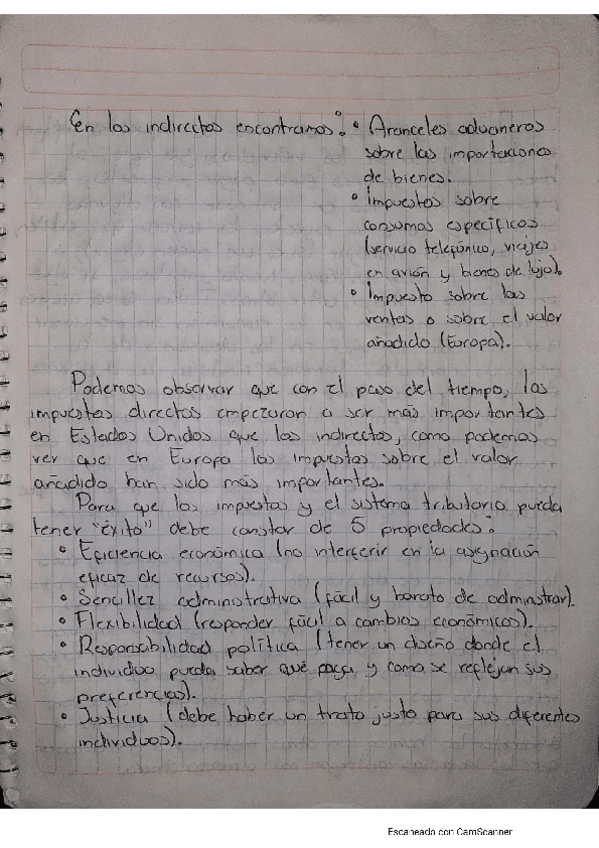 En los indirectos encontramos: • Aranceles aduaneros
sobre las importaciones
de bienes.
• Impuestos sobre
consumos específicos
(servicio telefónico, viajes
en avión y bienes de lujo).
• Impuesto sobre las
ventas o sobre el valor
añadido (Europa).
Podemos observar que con el paso del tiempo, los
impuestos directos empezaron a ser más importantes
en Estados Unidos que los indirectos, como podemos
ver que en Europa los impuestos sobre el valor
añadido han sido más importantes.
Para que los impuestos y el sistema tributario pueda
tener "éxito" debe constar de 5 propiedades:
• Eficiencia económica (no interferir en la asignación
eficaz de recursos).
• Sencillez administrativa (fácil y barato de adminstrar).
• Flexibilidad (responder fácil a cambios económicos).
• Responsabilidad política (tener un diseño donde el
individuo pueda saber qué paga y como se reflejan sus
preferencias).
• Justicia (debe haber un trato justo para sus diferentes
individuos).
Escaneado con CamScanner